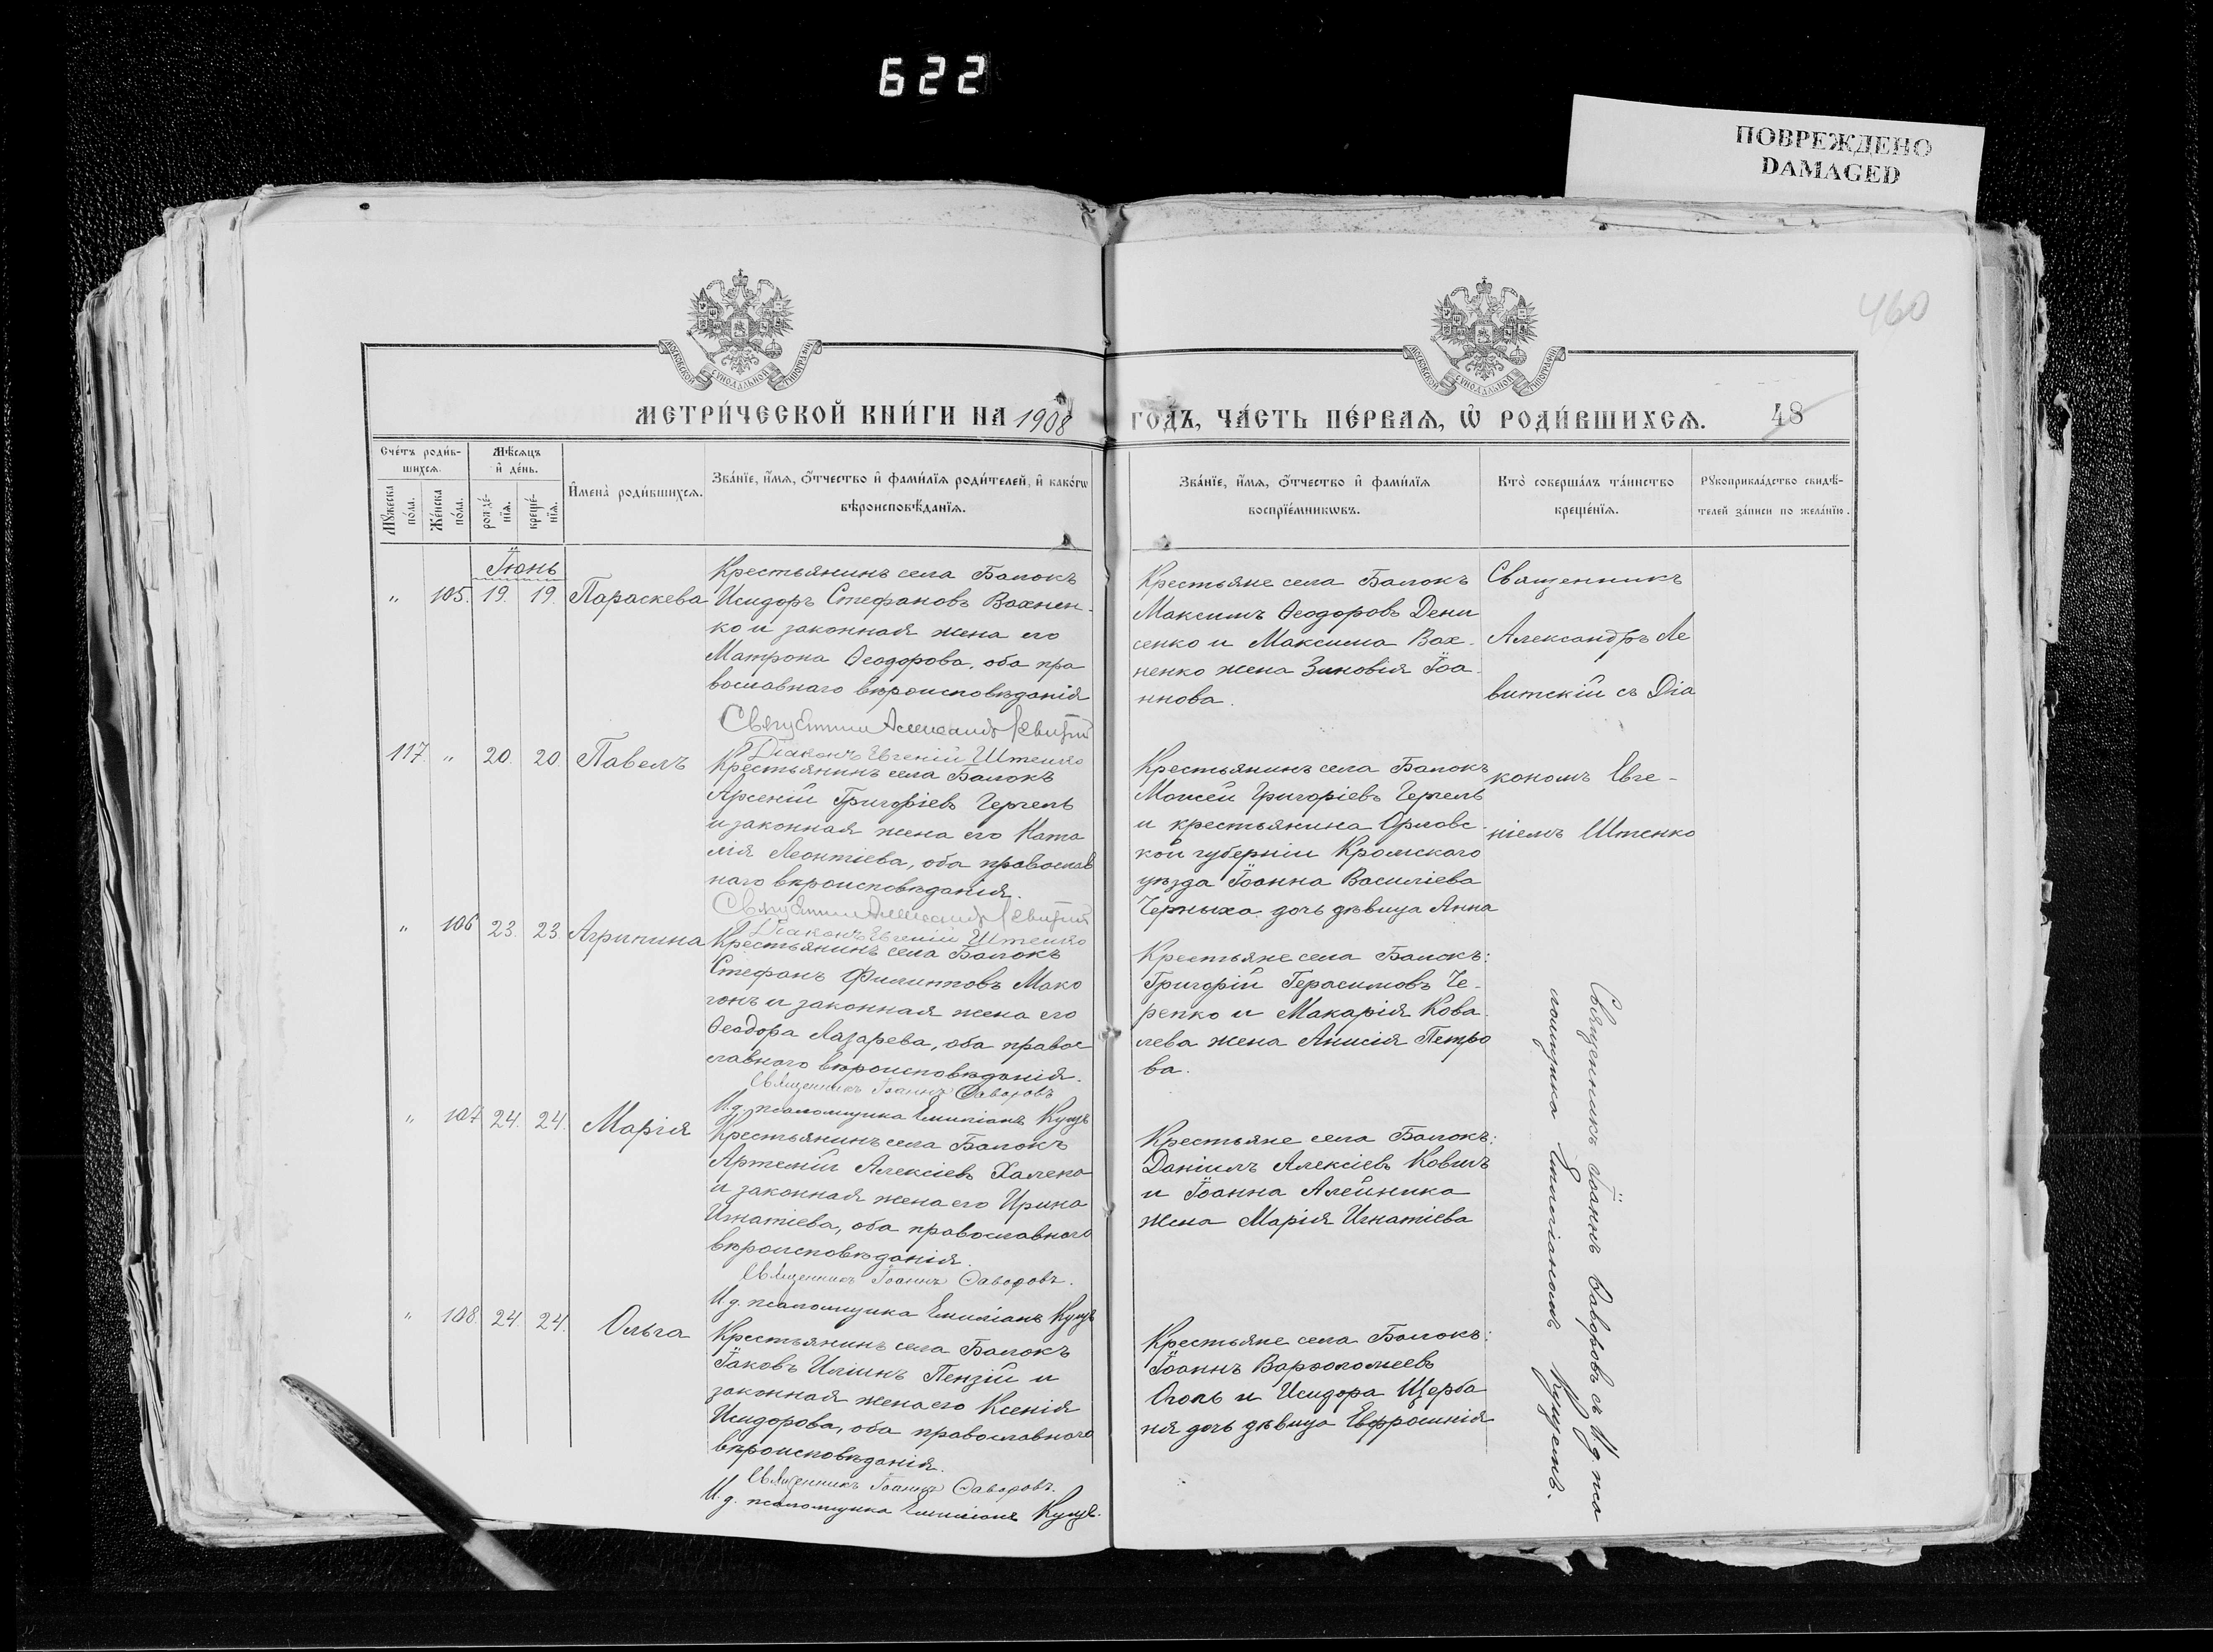 622
ПОВРЕЖДЕНО
DAMAGED
460
МОСКОВСКОЙ СѴНОДАЛЬНОЙ ТИПОГРАФІИ
МОСКОВСКОЙ СѴНОДАЛЬНОЙ ТИПОГРАФІИ
МЕТРИ́ЧЕСКОЙ КНИ́ГИ НА 1908
ГОДЪ, ЧА́СТЬ ПЕ́РВАЯ, Ѡ РОДИ́ВШИХСЯ.
48
Сче́тъ роди́в-
шихся.
Мѣ́сяцъ
и де́нь.
Му́жеска
по́ла.
Же́нска
по́ла.
рожде́-
нїя.
креще́-
нїя.
Имена̀ роди́вшихся.
Зва́нїе, и́мя, о́тчество и фами́лїя роди́телей, и како́гѡ
вѣроисповѣ́данїя.
Зва́нїе, и́мя, о́тчество и фами́лїя
воспрїе́мникѡвъ.
Кто̀ соверша́лъ та́инство
креще́нїя.
Рꙋкоприкла́дство свидѣ́-
телей за́писи по жела́нїю.
Іюнь
" 105. 19. 19. Параскева
Крестьянинъ села Балокъ
Исидоръ Стефановъ Вахнен-
ко и законная жена его
Матрона Ѳеодорова, оба пра
вославнаго вѣроисповѣданія
Діаконъ Евгеній Штенко
Крестьяне села Балокъ
Максимъ Ѳеодоровъ Дени
сенко и Максима Вах-
ненко жена Зиновія Іоа-
ннова.
Священникъ
Александръ Ле
витскій съ Діа
кономъ Евге-
ніемъ Штенко
117. " 20. 20. Павелъ
Крестьянинъ села Балокъ
Арсеній Григоріевъ Гергель
и законная жена его Ната
лія Леонтіева, оба православ
наго вѣроисповѣданія.
Діаконъ Евгеній Штенко
Крестьянинъ села Балокъ
Моисей Григоріевъ Гергель
и крестьянина Орловс-
кой губерніи Кромскаго
уѣзда Іоанна Василіева
Черныха дочь дѣвица Анна
" 106 23. 23. Агрипина
Крестьянинъ села Балокъ
Стефанъ Филипповъ Мако
гонъ и законная жена его
Ѳеодора Лазарева, оба правос
лавнаго вѣроисповѣданія.
Священникъ Іоаннъ Ѳаворовъ
И.д. псаломщика Емиліанъ Куцъ
Крестьяне села Балокъ:
Григорій Герасимовъ Че-
репко и Макарія Кова-
лева жена Анисія Петро
ва.
Священникъ Іоаннъ Ѳаворовъ съ И.д. пса
ломщика Емиліаномъ Куцемъ.
" 107 24. 24. Марія
Крестьянинъ села Балокъ
Артемій Алексіевъ Халепа
и законная жена его Ирина
Игнатіева, оба православнаго
вѣроисповѣданія.
Священникъ Іоаннъ Ѳаворовъ.
И.д. псаломщика Емиліанъ Куцъ
Крестьяне села Балокъ:
Даніилъ Алексіевъ Ковиль
и Іоанна Алейника
жена Марія Игнатіева
" 108. 24. 24. Ольга
Крестьянинъ села Балокъ
Іаковъ Илiинъ Пензій и
законная жена его Ксенія
Исидорова, оба православнаго
вѣроисповѣданія.
Священникъ Іоаннъ Ѳаворовъ.
И.д. псаломщика Емиліанъ Куцъ.
Крестьяне села Балокъ:
Іоаннъ Варѳоломеевъ
Оголь и Исидора Щерба
ня дочь дѣвица Евфросинія